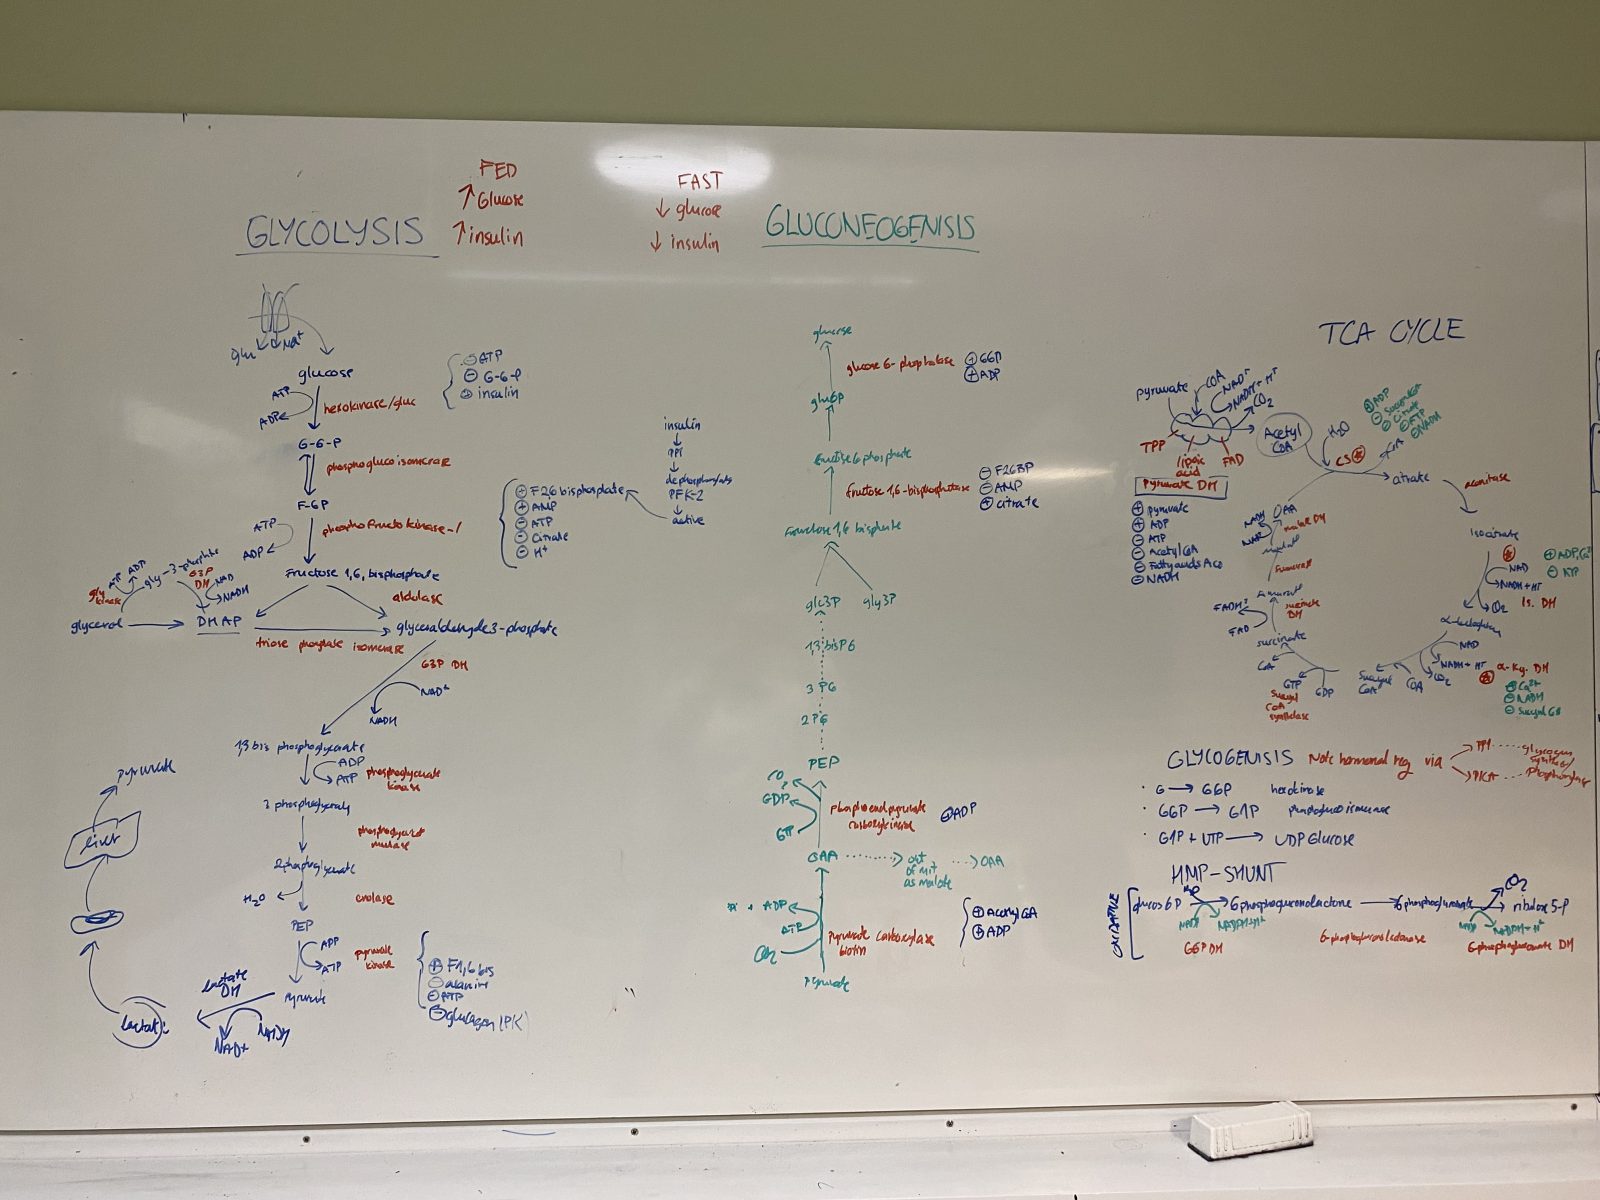 FED
↑ Glucose
↑ insulin
FAST
↓ glucose
↓ insulin
GLYCOLYSIS
glu Na+
glucose
ATP
ADP
hexokinase/gluc
⊖ ATP
⊖ G-6-P
⊕ insulin
G-6-P
phosphoglucoisomerase
F-6P
ATP
ADP
phosphofructokinase-1
⊕ F2,6 bisphosphate
⊕ AMP
⊖ ATP
⊖ Citrate
⊖ H+
insulin
PP1
PFK-2
active
Fructose 1,6, bisphosphate
aldolase
gly kinase
ATP ADP
gly-3-phosphate
G3P DH
NAD
NADH
glycerol
DHAP
triose phosphate isomerase
glyceraldehyde 3-phosphate
G3P DH
NAD+
NADH
1,3 bis phosphoglycerate
ADP
ATP
phosphoglycerate kinase
3 phosphoglycerate
phosphoglycerate mutase
2 phosphoglycerate
H2O
enolase
PEP
ADP
ATP
pyruvate kinase
⊕ F1,6 bis
⊖ alanine
⊖ ATP
⊖ glucagon (PK)
pyruvate
lactate DH
NADH
NAD+
lactate
liver
pyruvate
GLUCONEOGENISIS
glucose
glucose 6-phosphatase
⊕ G6P
⊕ ADP
glu6p
fructose 6 phosphate
fructose 1,6-bisphosphatase
⊖ F263P
⊖ AMP
⊕ citrate
Fructose 1,6 bisphosphate
glc3P gly3P
1,3 bisPG
3 PG
2 PG
PEP
CO2
GDP
GTP
phosphoenolpyruvate carboxykinase
⊖ ADP
OAA out of mit as malate OAA
ADP
ATP
CO2
pyruvate carboxylase
biotin
⊕ Acetyl CoA
⊕ ADP
pyruvate
TCA CYCLE
pyruvate
COA
NAD+
NADH + H+
CO2
Acetyl COA
TPP
lipoic acid
FAD
Pyruvate DH
⊕ pyruvate
⊕ ADP
⊖ ATP
⊖ Acetyl CoA
⊖ NADH
H2O
CS
COA
⊕ ADP
⊖ Succinyl CoA
⊖ Citrate
⊖ ATP
⊖ NADH
citrate
aconitase
isocitrate
⊕ ADP, Ca2+
⊖ ATP
NAD
NADH + H+
CO2
Is. DH
NAD
NADH + H+
CO2
COA
α-Kg. DH
⊕ Ca2+
⊖ NADH
⊖ Succinyl CoA
Succinyl CoA
GDP
GTP
COA
Succinyl COA synthetase
succinate
succinate DH
FAD
FADH2
fumarate
fumarase
malate
malate DH
NAD
NADH
OAA
GLYCOGENISIS
Note hormonal reg via
PP1 PKA
glycogen synthase/ phosphorylase
· G → G6P hexokinase
· G6P → G1P phosphoglucoisomerase
· G1P + UTP → UDP Glucose
HMP-SHUNT
OXIDATIVE
glucos 6P → 6 phosphogluconolactone → 6 phosphogluconate → ribulose 5-P
CO2
NADP NADPH+H+
NADP NADPH+H+
G6P DH
6-phosphogluconolactonase
6-phosphogluconate DH